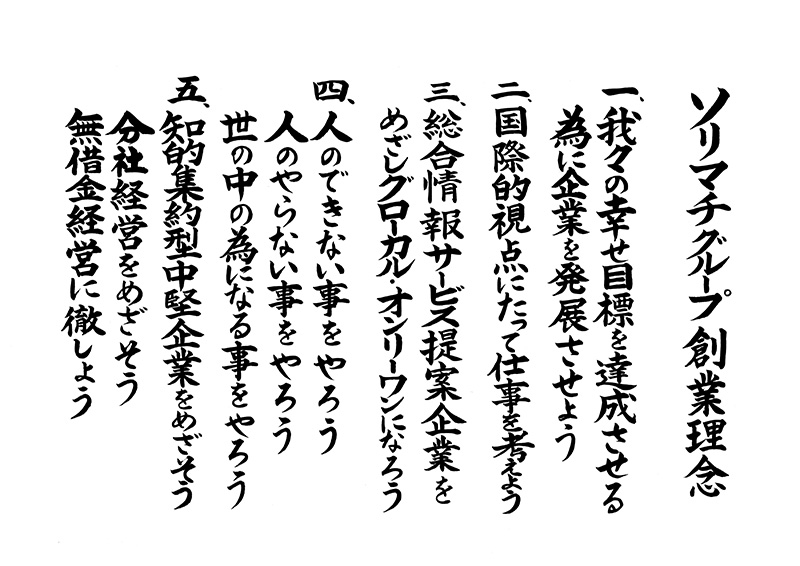 ソリマチグループ創業理念
一、我々の幸せ目標を達成させる
為に企業を発展させよう
二、国際的視点にたって仕事を考えよう
三、総合情報サービス提案企業を
めざしグローカル・オンリーワンになろう
四、人のできない事をやろう
人のやらない事をやろう
世の中の為になる事をやろう
五、知的集約型中堅企業をめざそう
分社経営をめざそう
無借金経営に徹しよう